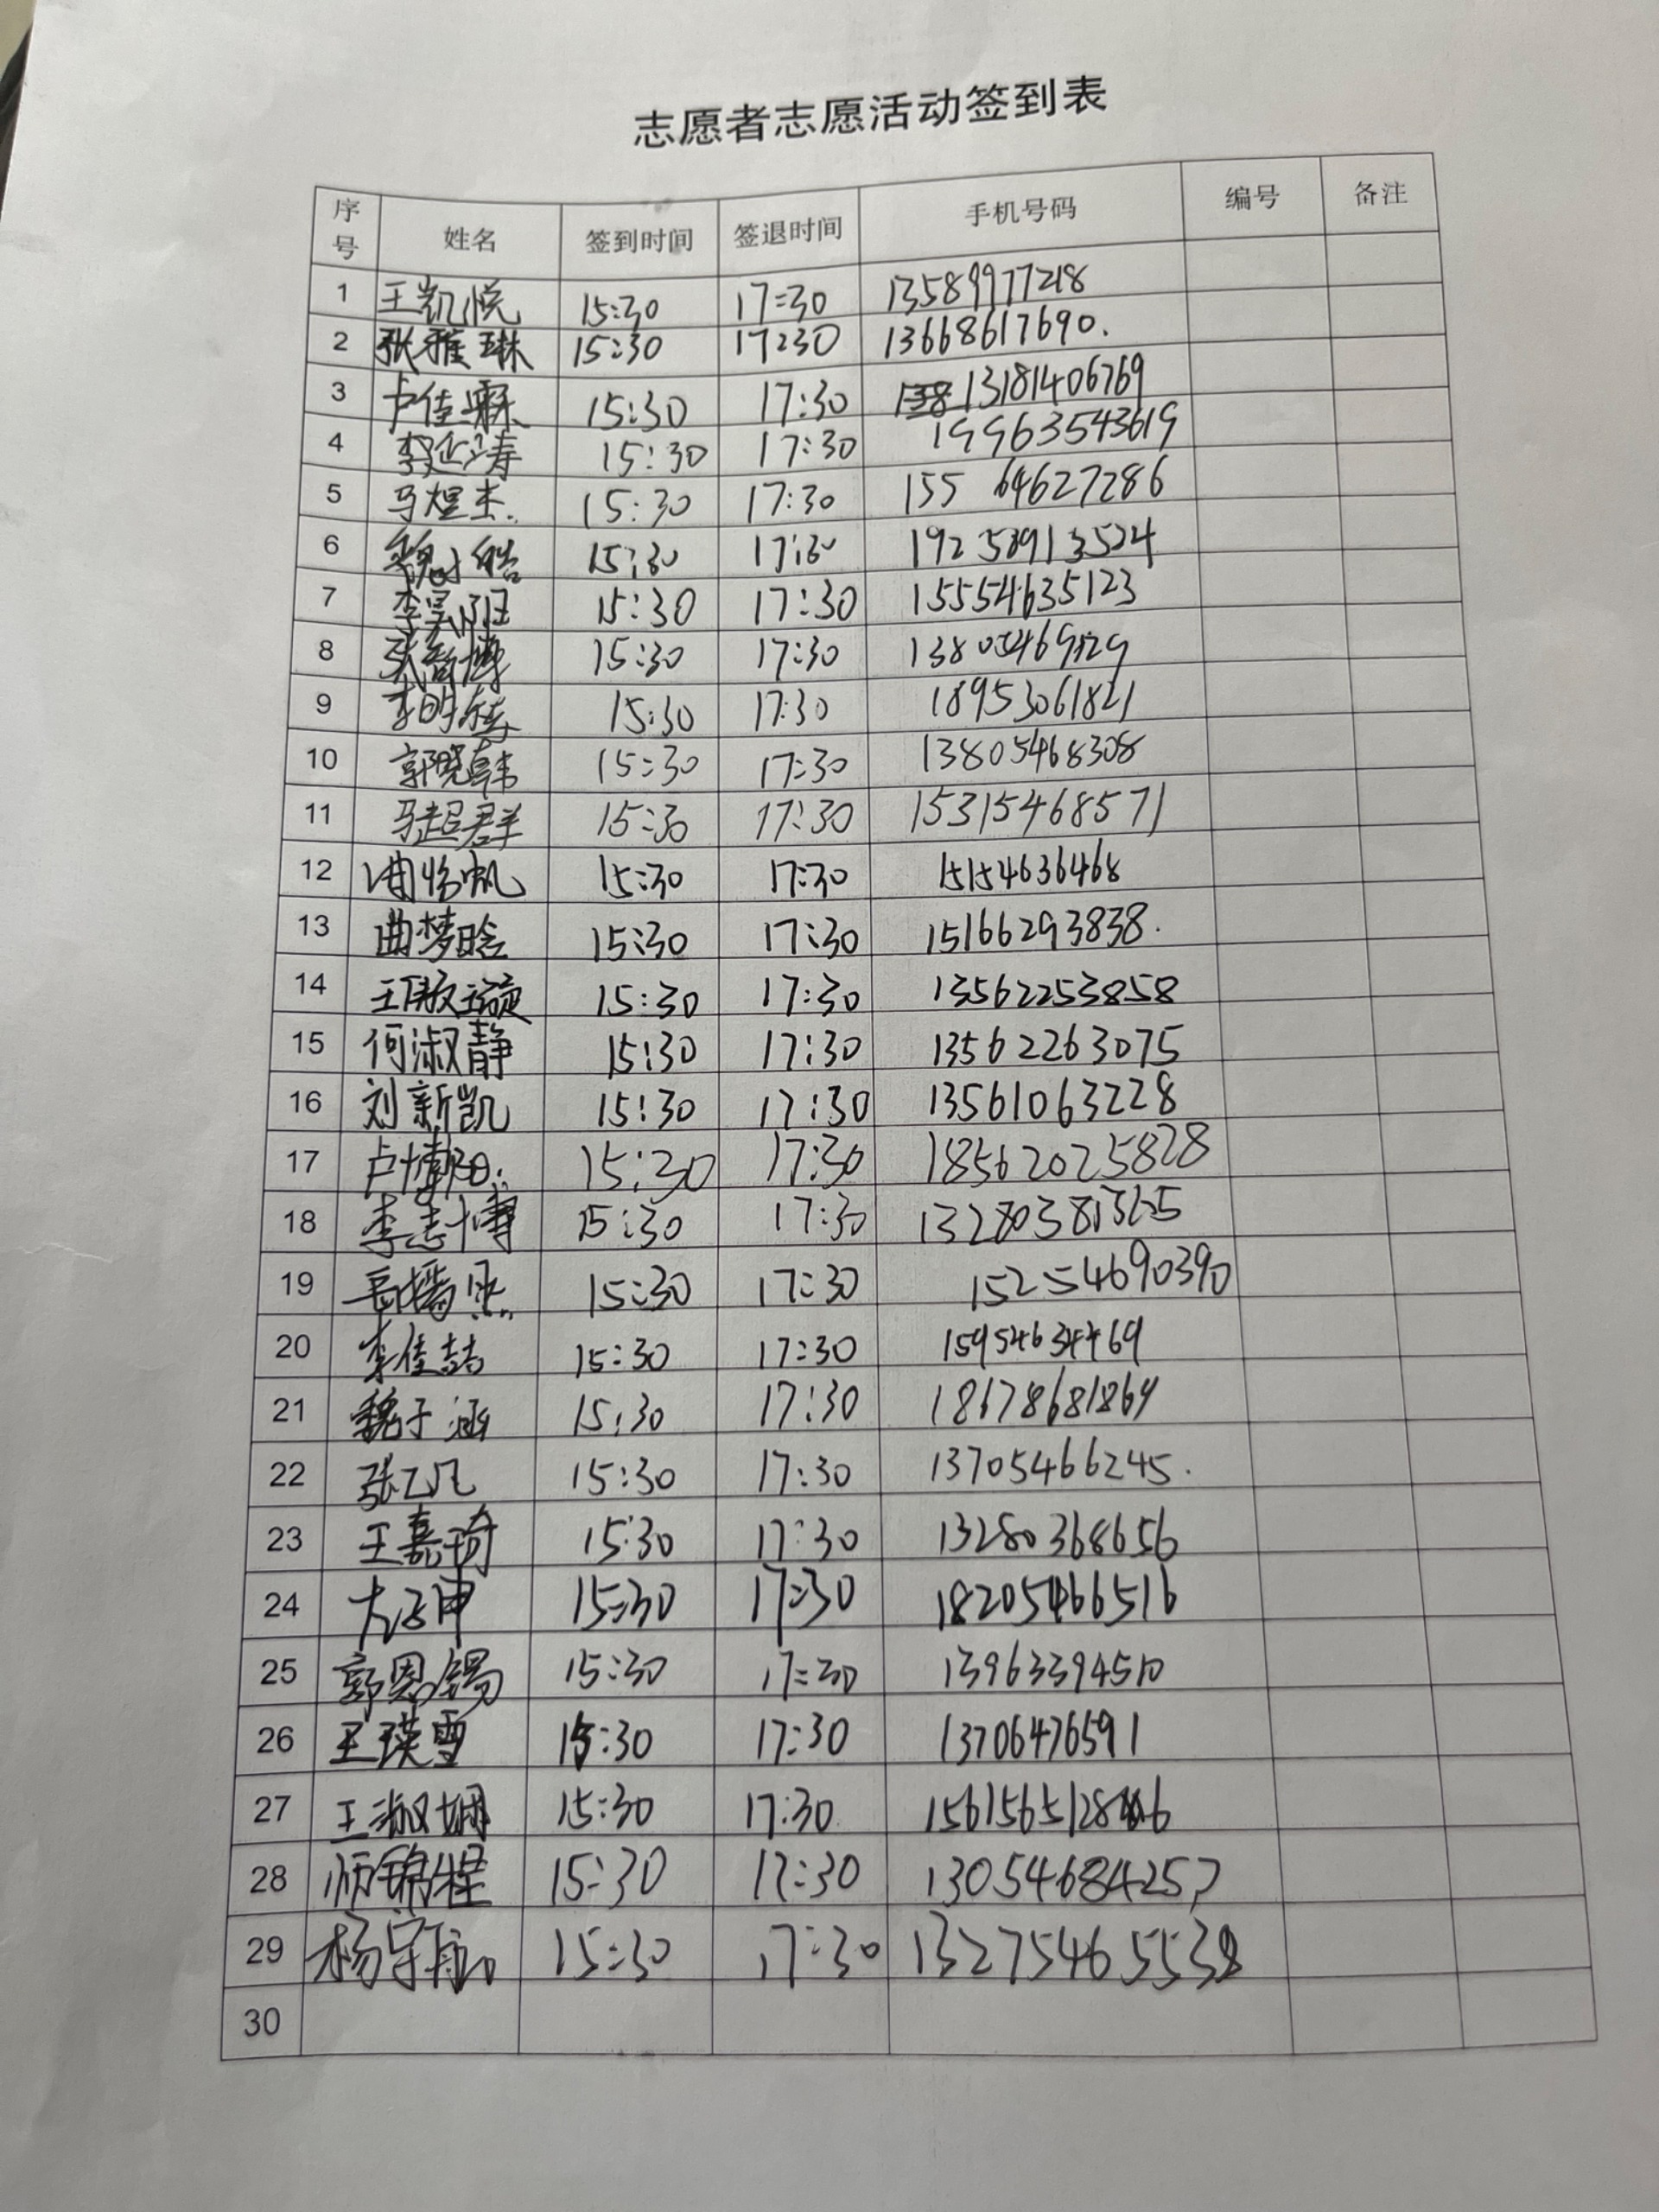 志愿者志愿活动签到表
序号 姓名 签到时间 签退时间 手机号码 编号 备注
1 王凯悦 15:30 17:30 13589977218
2 张雅琳 15:30 17:30 13668617690.
3 卢佳霖 15:30 17:30 13181406769
4 李延涛 15:30 17:30 19963543619
5 马煜杰 15:30 17:30 155 64627286
6 15:30 17:30
7 李昊 15:30 17:30 15554635123
8 张智博 15:30 17:30
9 李明 15:30 17:30 18953061821
10 郭晓韩 15:30 17:30 13805468308
11 马超群 15:30 17:30 15315468571
12 曲怡帆 15:30 17:30 15154636468
13 曲梦晗 15:30 17:30 15166293838.
14 王傲璇 15:30 17:30 13562253858
15 何淑静 15:30 17:30 13562263075
16 刘新凯 15:30 17:30 13561063228
17 卢博阳 15:30 17:30 18562025828
18 李志博 15:30 17:30
19 15:30 17:30 15254690390
20 李佳喆 15:30 17:30
21 魏子涵 15:30 17:30 18678681869
22 张乙凡 15:30 17:30 13705466245.
23 王嘉琦 15:30 17:30 13280368656
24 15:30 17:30 18205466516
25 郭恩锡 15:30 17:30 13963394510
26 王瑛雪 15:30 17:30 13706476591
27 王淑娴 15:30 17:30
28 师锦程 15:30 17:30 13054684257
29 杨宇航 15:30 17:30 13275465538
30